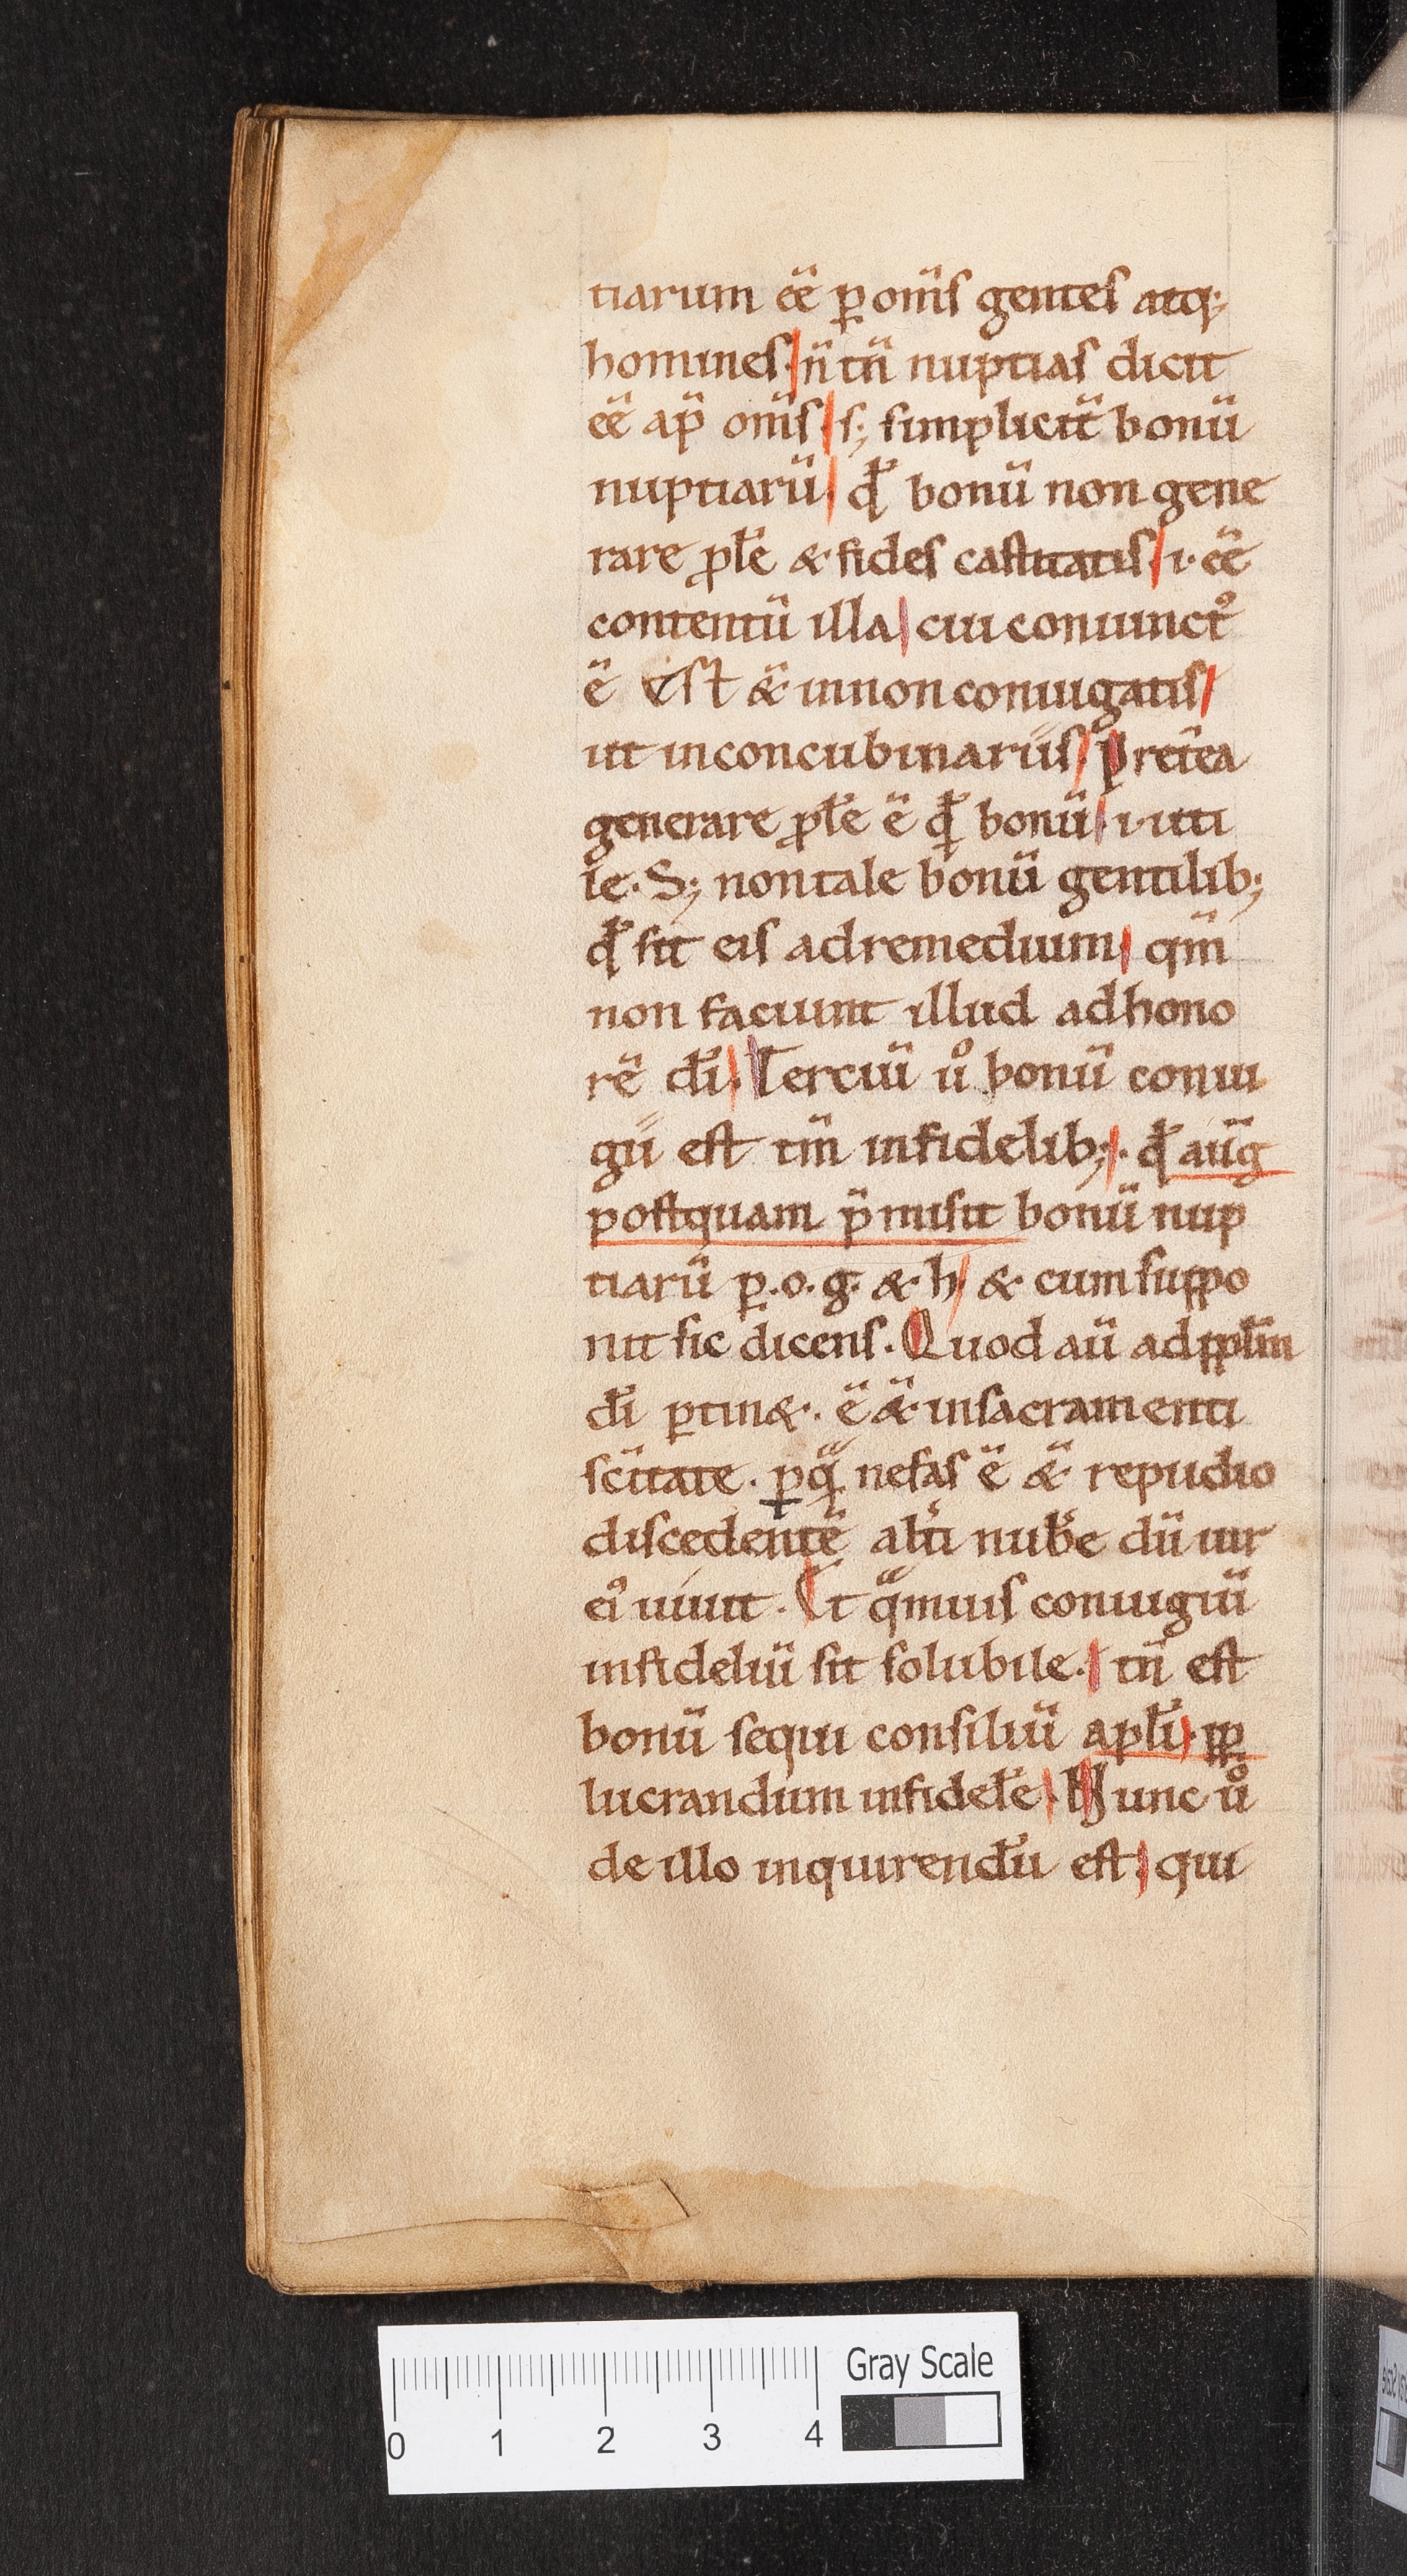 tiarum ee̅ ꝑ om̅s gentes atq;
homines. n̅ tn̅ nuptias dicit
ee̅ ap̅ om̅s. s; simplicit̅ bonu̅
nuptiaru̅. qd̅ bonu̅ non gene
rare ꝓle̅ & fides castitatis. i. ee̅
contentu̅ illa. cui coniunctꝰ
e̅ Est &̅ in non coniugatis
ut in concubinariis. Prete̅a
generare ꝓle̅ e̅ qd̅ bonu̅. i. uti
le. S; non tale bonu̅ gentilib;
qd̅ sit eis ad remedium. qm̅
non faciunt illud ad hono
re̅ di̅. Terciu̅ uͦ bonu̅ coniu
gii est tm̅ in fidelib;. qd̅ au̅g
postquam p̅misit bonu̅ nup
tiaru̅ ꝑ. o. g. & h. & cum suppo
nit sic dicens. Quod au̅ ad ppl̅m
di̅ ꝑtin&. e̅ &̅ in sacramenti
sc̅itate. ꝑ qͣ̅ nefas e̅ &̅ repudio
discedente̅ alt̅i nub̅e du̅ uir
eiꝰ uiuit. Et qͣmuis coniugiu̅
infideliu̅ sit solubile. tn̅ est
bonu̅ sequi consiliu̅ apl̅i. ꝓp
lucrandum infidele̅. Nunc uͦ
de illo inquirendu̅ est. qui
0 1 2 3 4 Gray Scale